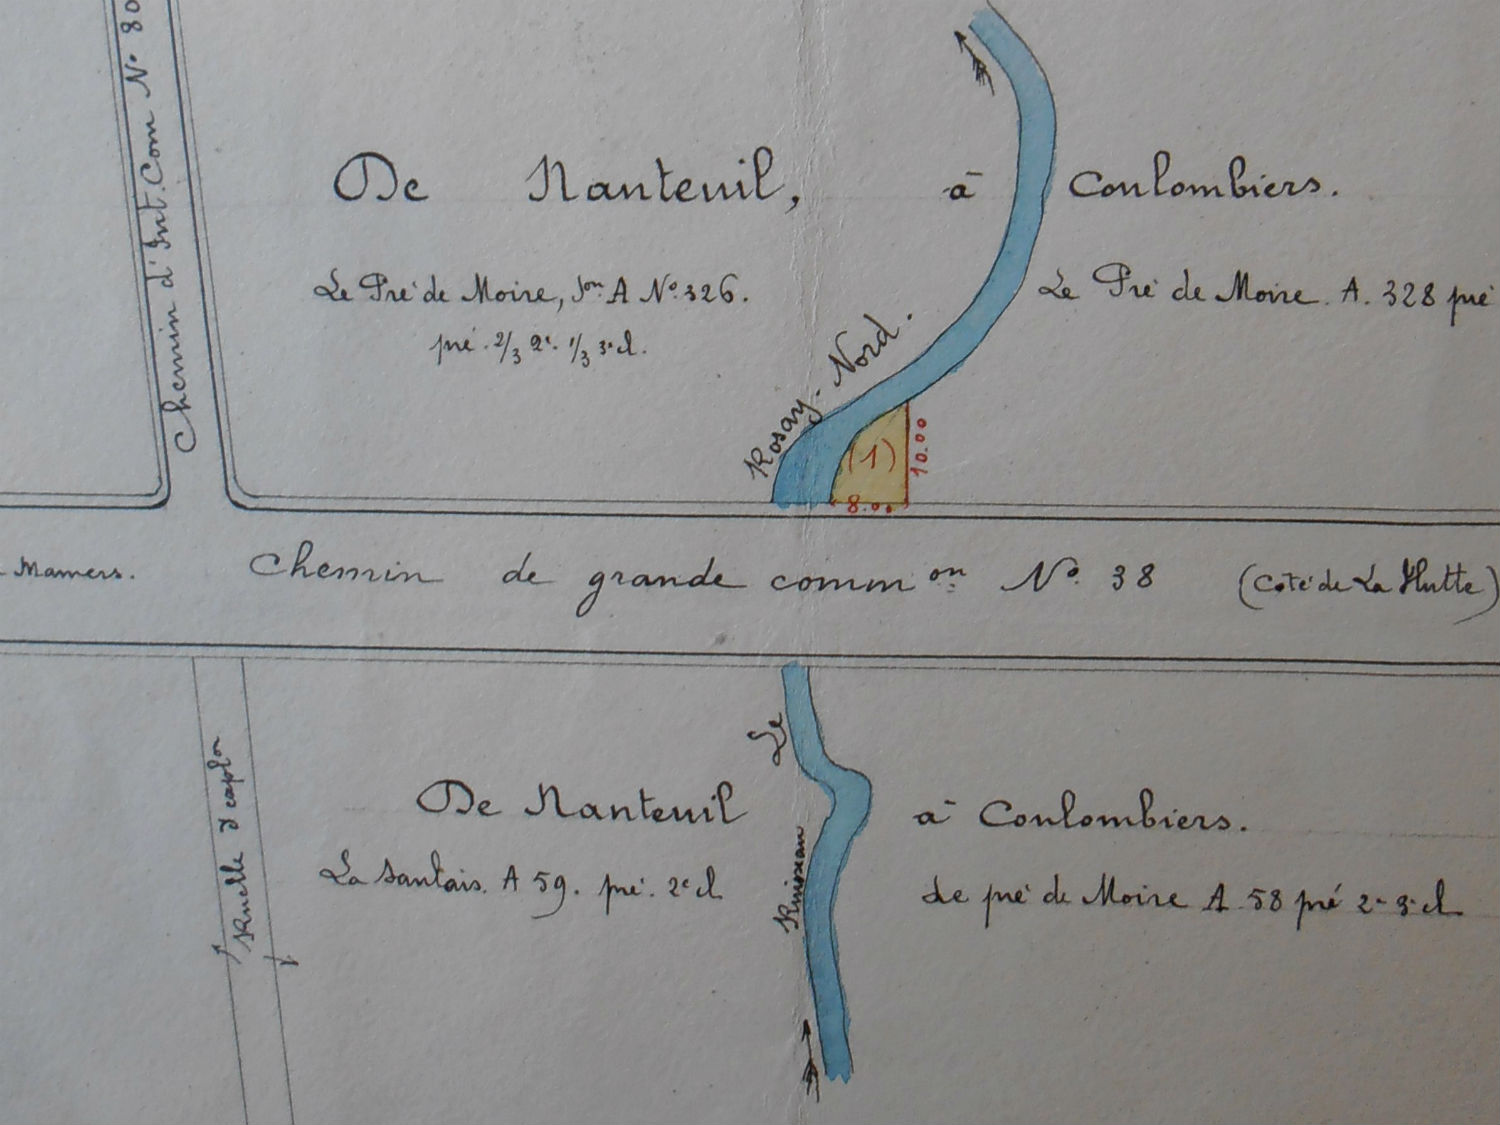 Chemin d'Int. Com N° 80
De Nanteuil, à Coulombiers.
Le Pré de Moire, Son A No. 326.
pré. 2/3 2e. 1/3 3e cl.
Le Pré de Moire. A. 328 pré
Rosay. Nord.
(1)
10.00
8.00
Mamers.
Chemin de grande common No. 38 (Coté de La Hutte)
Le
Ruisseau
Ruelle d'explon
De Nanteuil à Coulombiers.
La Santais. A 59. pré. 2e cl
Le pré de Moire A 58 pré 2e 3e cl